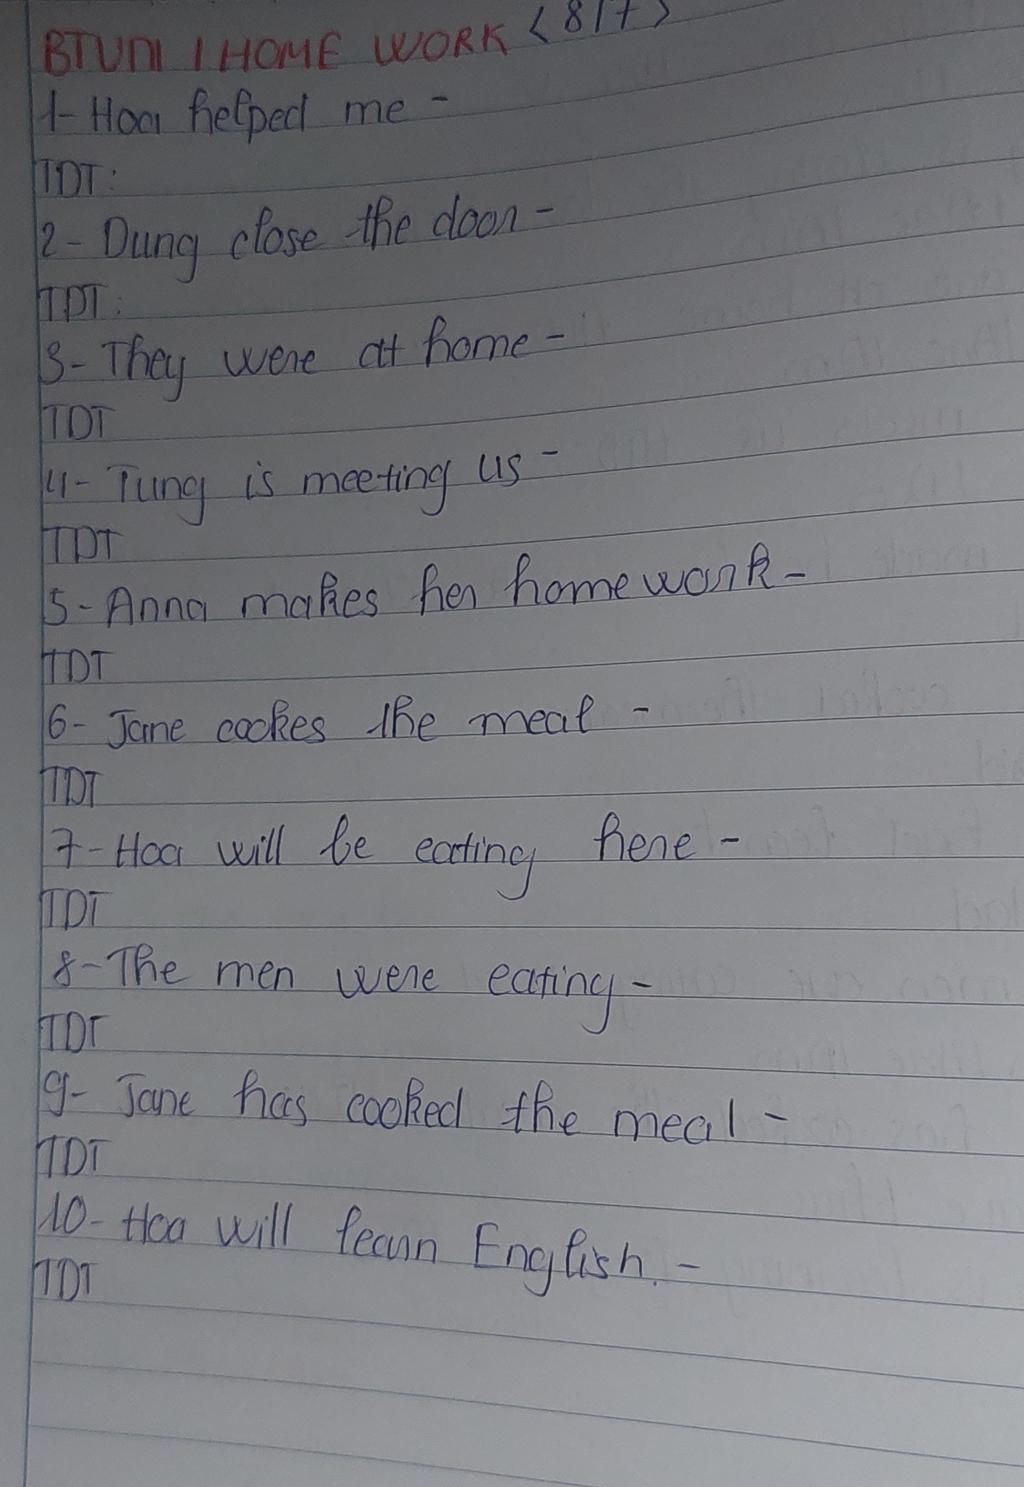 BTUNI 1 HOME WORK <8/7>
1- Hoa helped me -
TDT:
2- Dung close the door -
TDT:
3- They were at home -
TDT
4- Tung is meeting us -
TDT
5- Anna makes her homework -
TDT
6- Jane cookes the meal -
TDT
7- Hoa will be eating here -
TDT
8- The men were eating -
TDT
9- Jane has cooked the meal -
TDT
10- Hoa will learn English. -
TDT